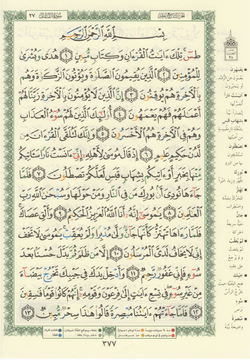 الجزء التاسع عشر
سورة النمل ٢٧
بِسْمِ اللَّهِ الرَّحْمَٰنِ الرَّحِيمِ
طسٓ تِلْكَ ءَايَٰتُ ٱلْقُرْءَانِ وَكِتَابٍ مُّبِينٍ ١ هُدًى وَبُشْرَىٰ
لِلْمُؤْمِنِينَ ٢ ٱلَّذِينَ يُقِيمُونَ ٱلصَّلَوٰةَ وَيُؤْتُونَ ٱلزَّكَوٰةَ وَهُم
بِٱلْءَاخِرَةِ هُمْ يُوقِنُونَ ٣ إِنَّ ٱلَّذِينَ لَا يُؤْمِنُونَ بِٱلْءَاخِرَةِ زَيَّنَّا لَهُمْ
أَعْمَٰلَهُمْ فَهُمْ يَعْمَهُونَ ٤ أُو۟لَٰٓئِكَ ٱلَّذِينَ لَهُمْ سُوٓءُ ٱلْعَذَابِ
وَهُمْ فِى ٱلْءَاخِرَةِ هُمُ ٱلْأَخْسَرُونَ ٥ وَإِنَّكَ لَتُلَقَّى ٱلْقُرْءَانَ مِن
لَّدُنْ حَكِيمٍ عَلِيمٍ ٦ إِذْ قَالَ مُوسَىٰ لِأَهْلِهِۦٓ إِنِّىٓ ءَانَسْتُ نَارًا سَـَٔاتِيكُم
مِّنْهَا بِخَبَرٍ أَوْ ءَاتِيكُم بِشِهَابٍ قَبَسٍ لَّعَلَّكُمْ تَصْطَلُونَ ٧ فَلَمَّا
جَآءَهَا نُودِىَ أَنۢ بُورِكَ مَن فِى ٱلنَّارِ وَمَنْ حَوْلَهَا وَسُبْحَٰنَ ٱللَّهِ رَبِّ
ٱلْعَٰلَمِينَ ٨ يَٰمُوسَىٰٓ إِنَّهُۥٓ أَنَا ٱللَّهُ ٱلْعَزِيزُ ٱلْحَكِيمُ ٩ وَأَلْقِ عَصَاكَ
فَلَمَّا رَءَاهَا تَهْتَزُّ كَأَنَّهَا جَآنٌّ وَلَّىٰ مُدْبِرًا وَلَمْ يُعَقِّبْ يَٰمُوسَىٰ لَا تَخَفْ
إِنِّى لَا يَخَافُ لَدَىَّ ٱلْمُرْسَلُونَ ١٠ إِلَّا مَن ظَلَمَ ثُمَّ بَدَّلَ حُسْنًۢا بَعْدَ
سُوٓءٍ فَإِنِّى غَفُورٌ رَّحِيمٌ ١١ وَأَدْخِلْ يَدَكَ فِى جَيْبِكَ تَخْرُجْ بَيْضَآءَ
مِنْ غَيْرِ سُوٓءٍ فِى تِسْعِ ءَايَٰتٍ إِلَىٰ فِرْعَوْنَ وَقَوْمِهِۦٓ إِنَّهُمْ كَانُوا۟ قَوْمًا فَٰسِقِينَ
١٢ فَلَمَّا جَآءَتْهُمْ ءَايَٰتُنَا مُبْصِرَةً قَالُوا۟ هَٰذَا سِحْرٌ مُّبِينٌ ١٣
٣٧٧